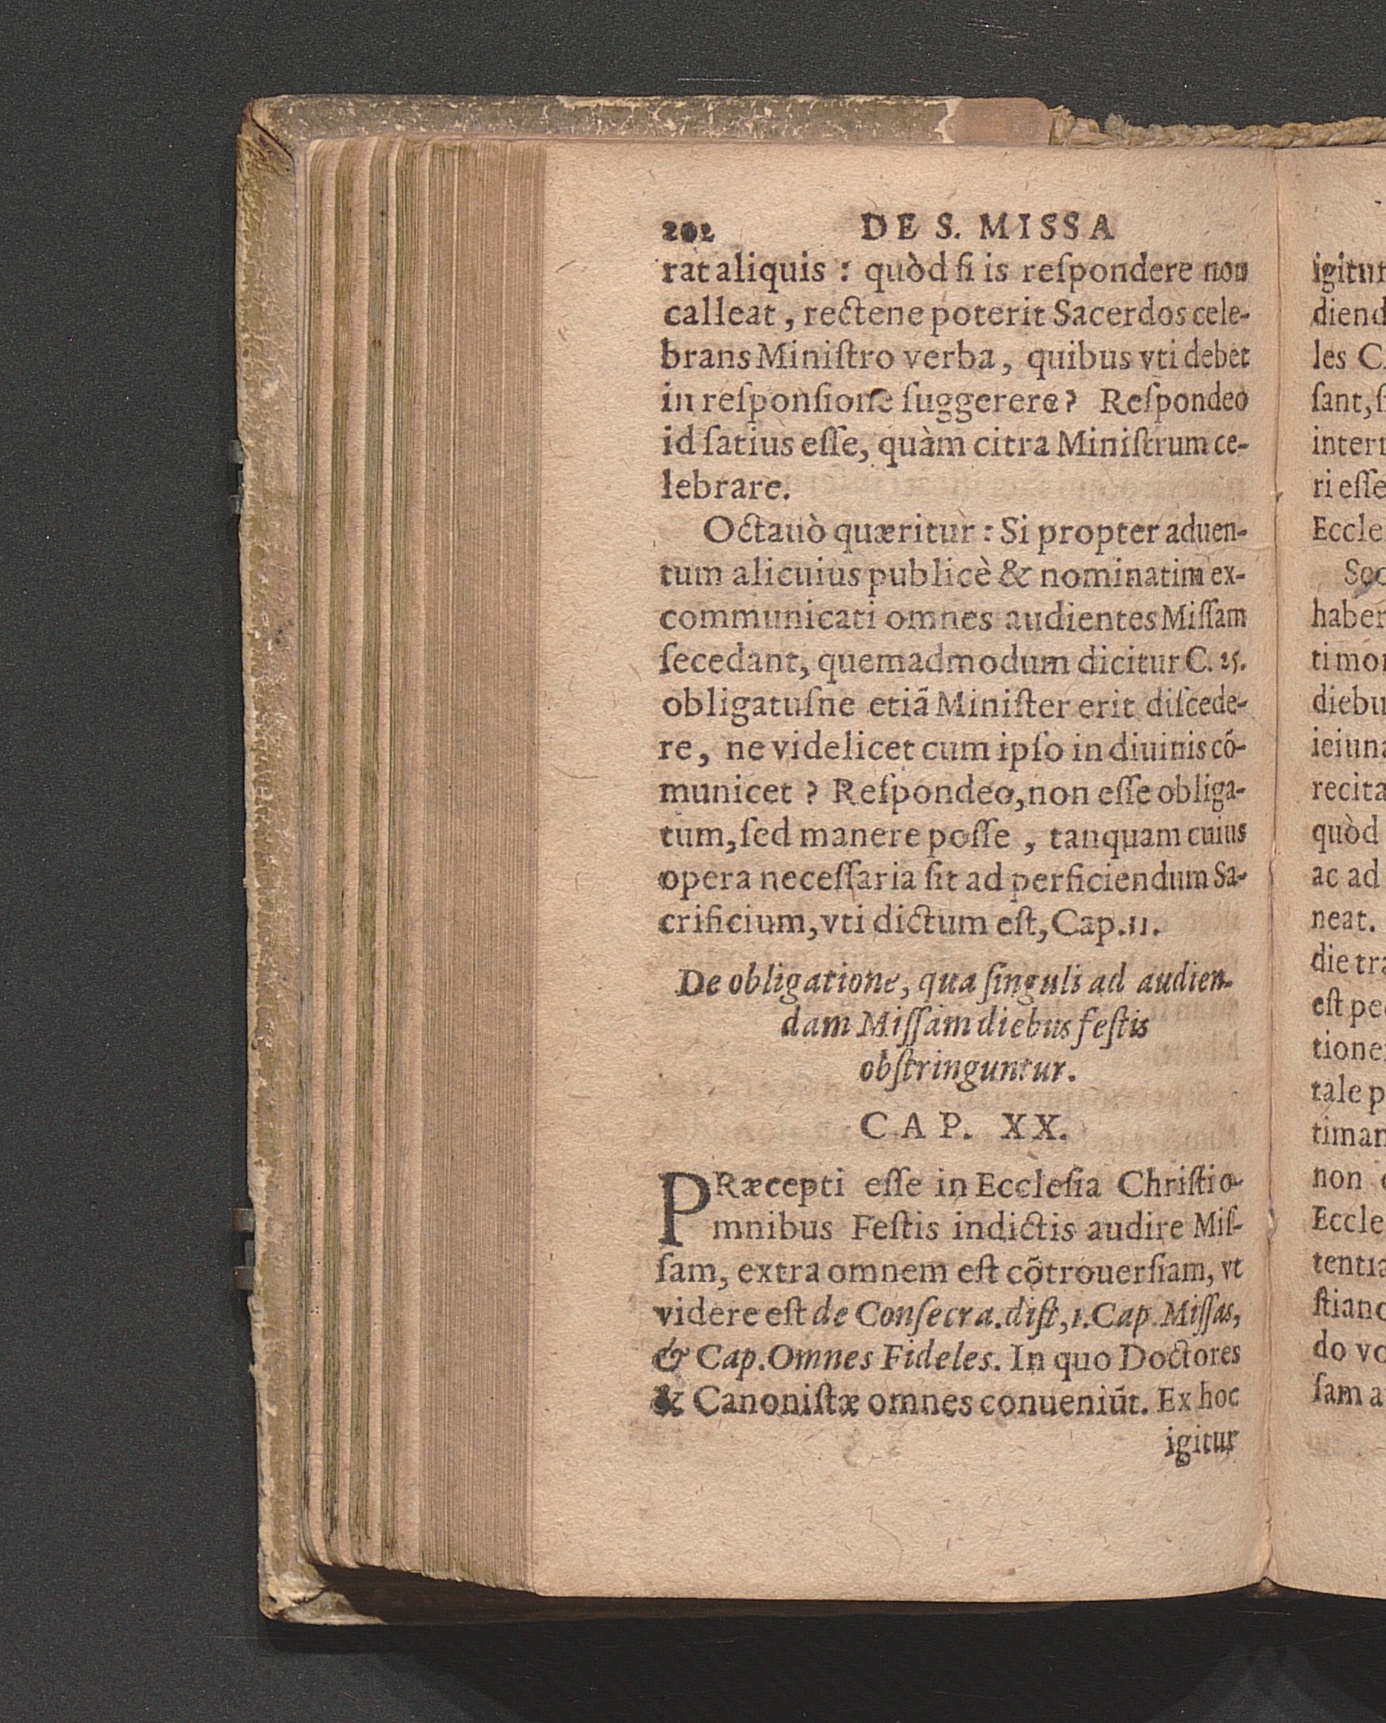 202 DE S. MISSA
rat aliquis : quòd ſi is reſpondere non
calleat, rectene poterit Sacerdos cele-
brans Miniſtro verba, quibus vti debet
in reſponſione ſuggerere? Reſpondeo
id ſatius eſſe, quàm citra Miniſtrum ce-
lebrare.
Octauò quæritur : Si propter aduen-
tum alicuius publicè & nominatim ex-
communicati omnes audientes Miſſam
ſecedant, quemadmodum dicitur C. 25.
obligatuſne etiã Miniſter erit diſcede-
re, ne videlicet cum ipſo in diuinis cõ-
municet ? Reſpondeo, non eſſe obliga-
tum, ſed manere poſſe, tanquam cuius
opera neceſſaria ſit ad perficiendum Sa-
crificium, vti dictum eſt, Cap. 11.
De obligatione, qua ſinguli ad audien-
dam Miſſam diebus feſtis
obſtringuntur.
CAP. XX.
PRæcepti eſſe in Eccleſia Chriſti o-
mnibus Feſtis indictis audire Miſ-
ſam, extra omnem eſt cõtrouerſiam, vt
videre eſt de Conſecra. diſt, 1. Cap. Miſſas,
& Cap. Omnes Fideles. In quo Doctores
& Canoniſtæ omnes conueniũt. Ex hoc
igitur
igitur
diend
les C
ſant, ſi
inter
ri eſſe
Eccle
haber
ti mor
diebu
ieiuna
recita
quòd
ac ad
neat.
die tra
eſt pe
tione
tale p
timan
non
Eccle
tentia
ſtiano
do vo
ſam a